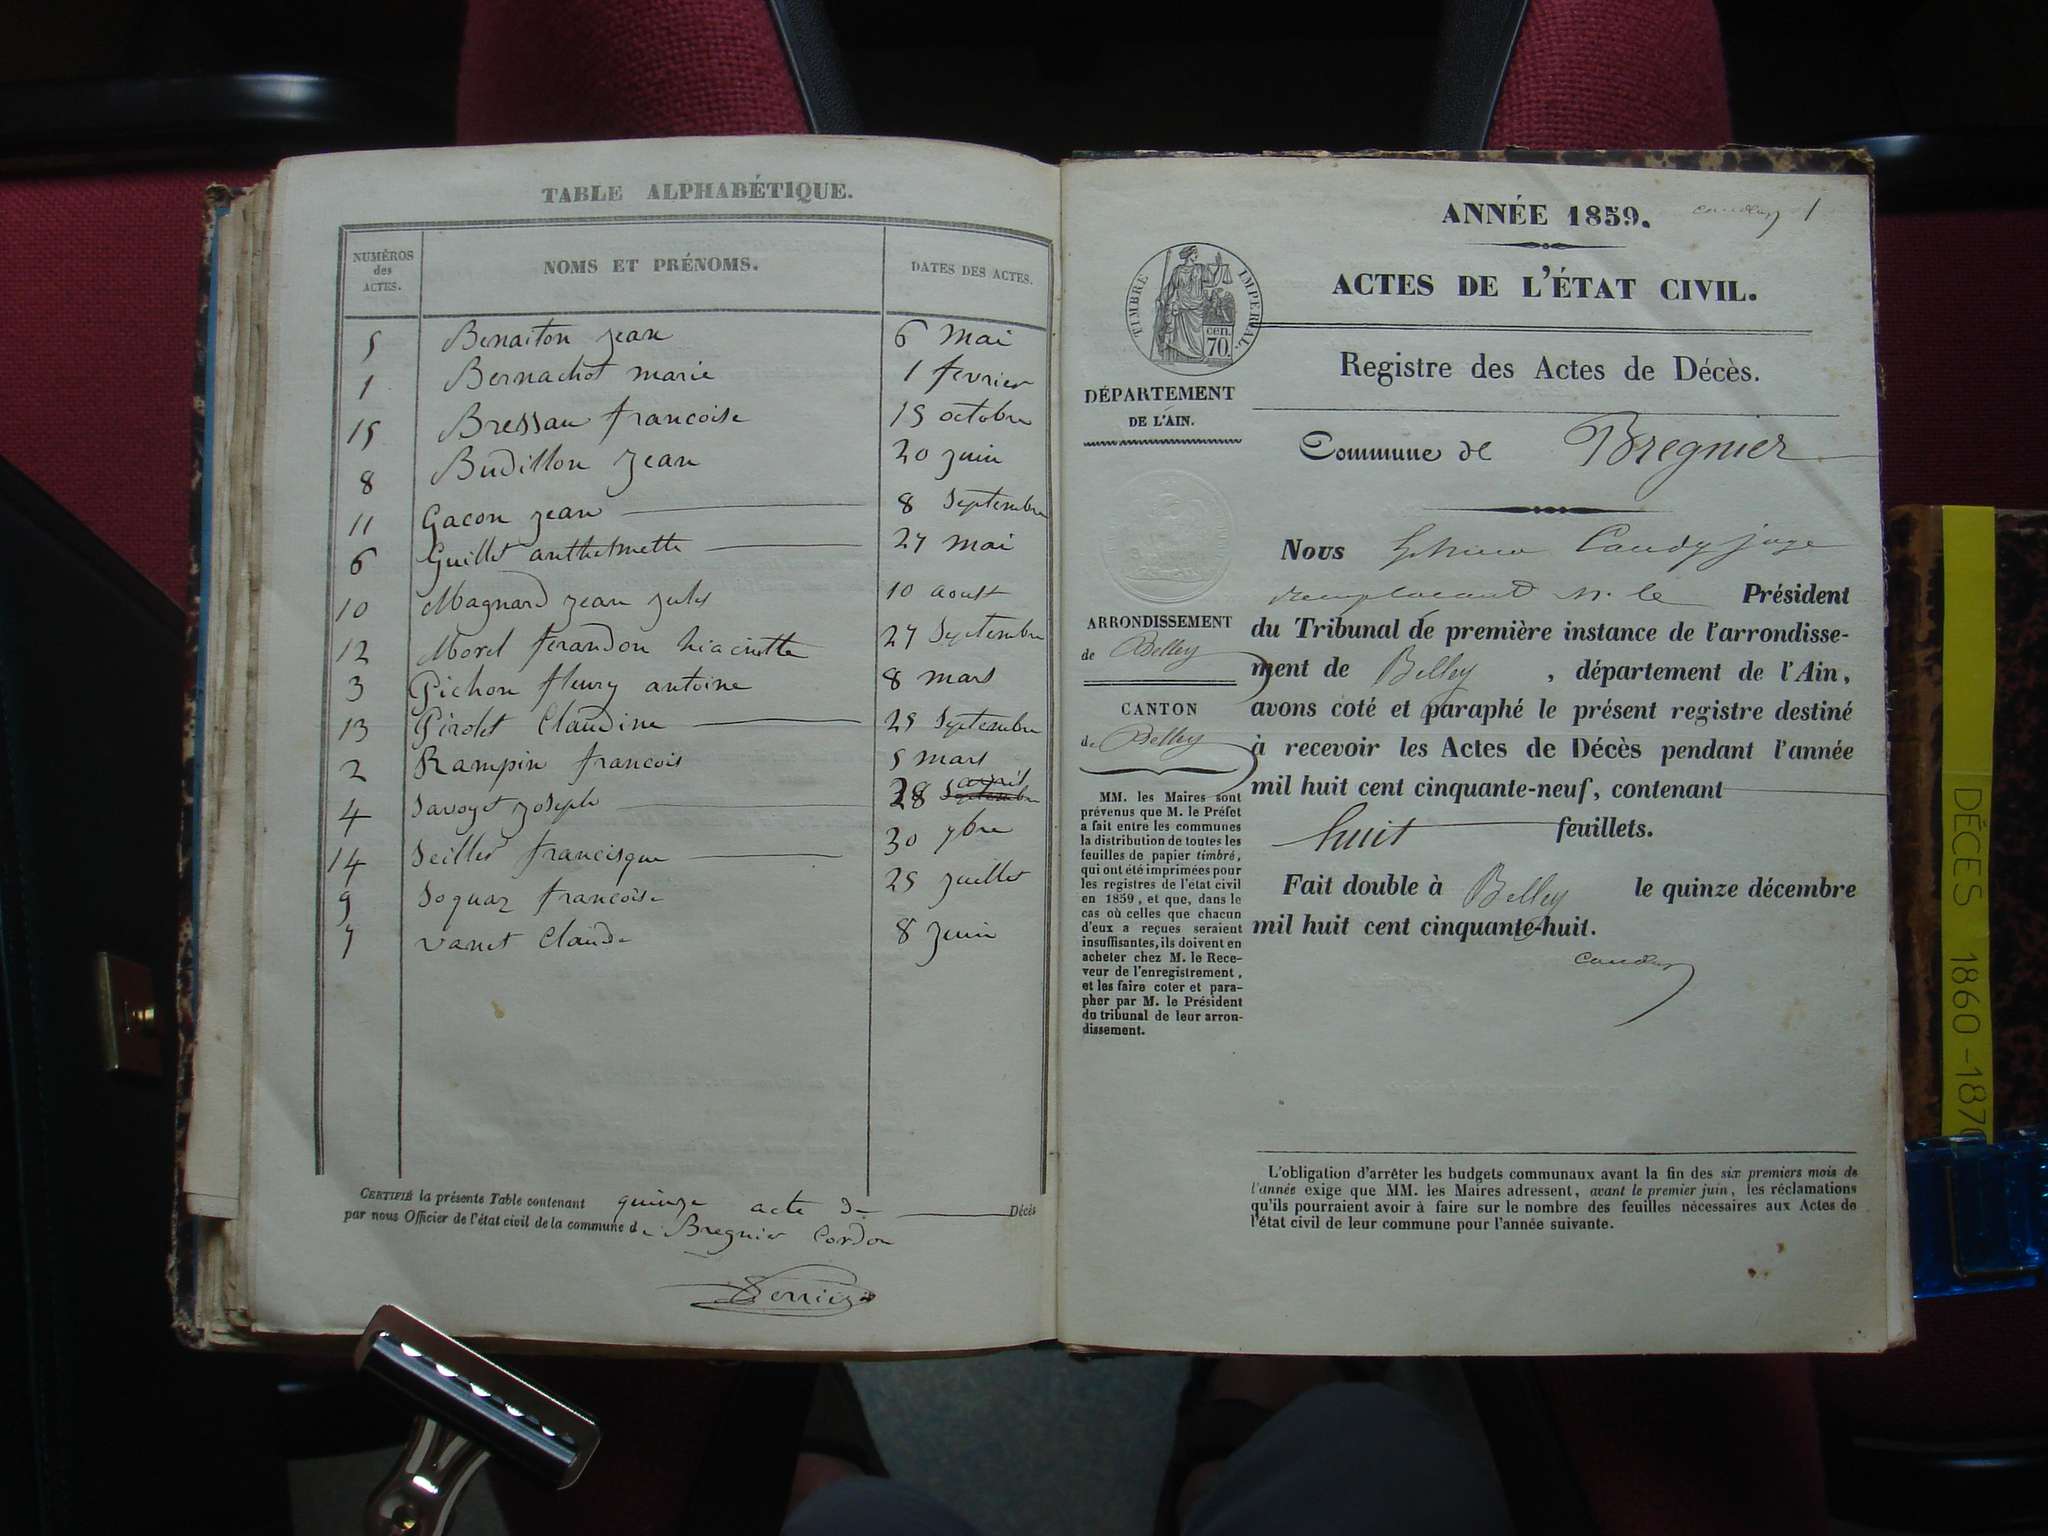 TABLE ALPHABÉTIQUE.
NUMÉROS des ACTES. NOMS ET PRÉNOMS. DATES DES ACTES.
5 Benaiton jean 6 mai
1 Bernachot marie 1 fevrier
15 Bressau francoise 15 octobre
8 Budillon jean 20 juin
11 Gacon jean 8 Septembre
6 Guillet anthelmette 27 mai
10 Magnard jean jules 10 aoust
12 Morel ferandon hiacinthe 27 Septembre
3 Pichon fleury antoine 8 mars
13 Pirolet Claudine 29 Septembre
2 Rampin francois 5 mars
4 Savoyet joseph 28 avril
14 Seilles francisque 30 7bre
9 Soquaz francoise 25 juillet
7 vanet Claude 8 juin
CERTIFIÉ la présente Table contenant quinze acte de Décès
par nous Officier de l'état civil de la commune de Bregnier Cordon
Perrier
ANNÉE 1859. 1
ACTES DE L'ÉTAT CIVIL.
TIMBRE IMPERIAL.
cen.
70.
Registre des Actes de Décès.
DÉPARTEMENT
DE L'AIN.
Commune de Bregnier
ARRONDISSEMENT
de Belley
CANTON
de Belley
MM. les Maires sont
prévenus que M. le Préfet
a fait entre les communes
la distribution de toutes les
feuilles de papier timbré,
qui ont été imprimées pour
les registres de l'état civil
en 1859, et que, dans le
cas où celles que chacun
d'eux a reçues seraient
insuffisantes, ils doivent en
acheter chez M. le Rece-
veur de l'enregistrement,
et les faire coter et para-
pher par M. le Président
du tribunal de leur arron-
dissement.
Nous Caudy juge
remplacant M. le Président
du Tribunal de première instance de l'arrondisse-
ment de Belley, département de l'Ain,
avons coté et paraphé le présent registre destiné
à recevoir les Actes de Décès pendant l'année
mil huit cent cinquante-neuf, contenant
huit feuillets.
Fait double à Belley le quinze décembre
mil huit cent cinquante-huit.
Caudy
L'obligation d'arrêter les budgets communaux avant la fin des six premiers mois de
l'année exige que MM. les Maires adressent, avant le premier juin, les réclamations
qu'ils pourraient avoir à faire sur le nombre des feuilles nécessaires aux Actes de
l'état civil de leur commune pour l'année suivante.
DÉCES 1860-1870